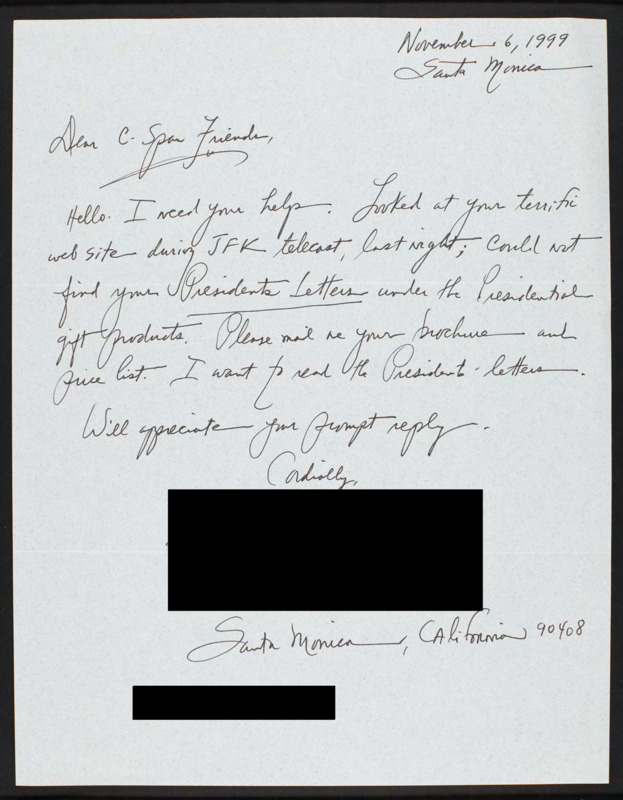 November 6, 1999
Santa Monica
Dear C-Span Friends,
Hello. I need your help. Looked at your terrific
web site during JFK telecast, last night; could not
find your Presidents Letters under the Presidential
gift products. Please mail me your brochure and
price list. I want to read the Presidents letters.
Will appreciate your prompt reply.
Cordially,
Santa Monica, California 90408